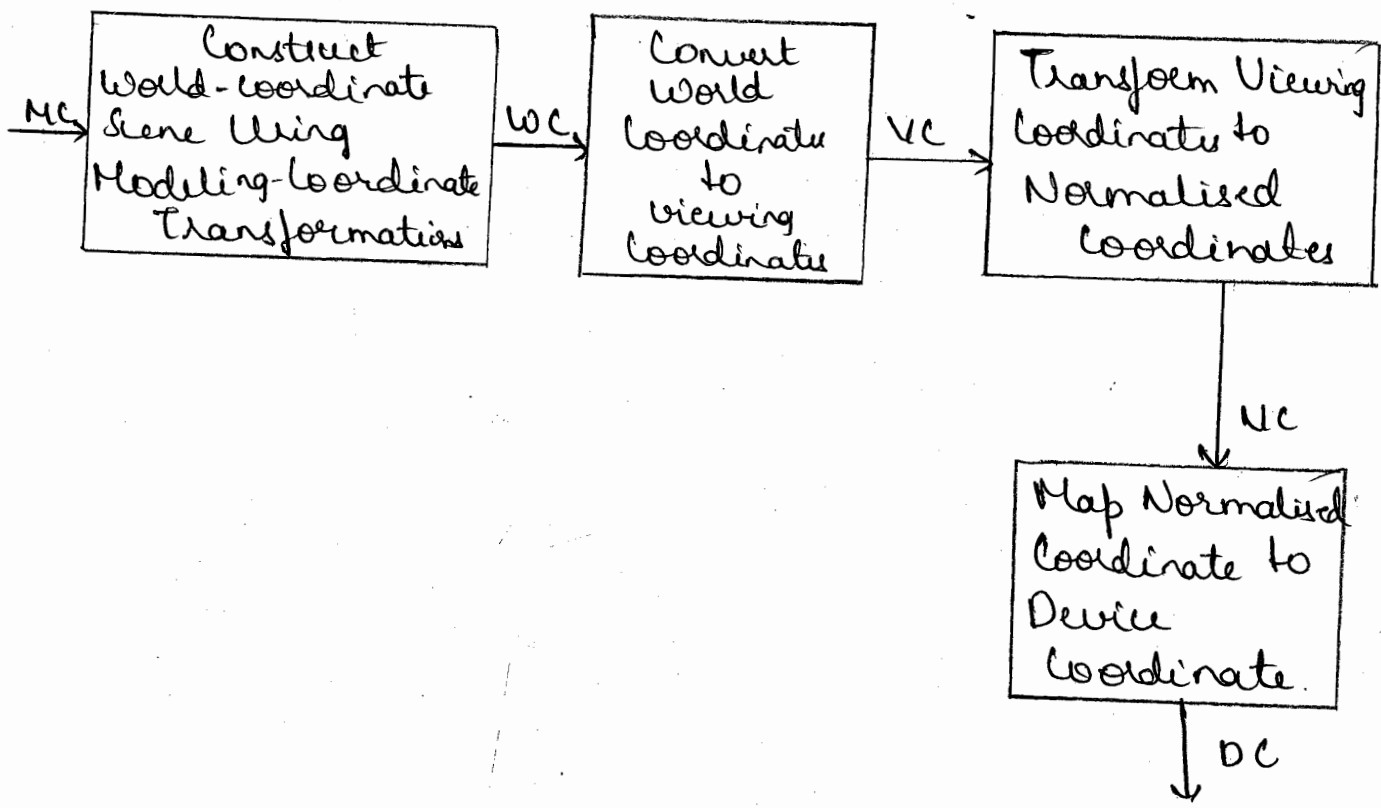 MC
Construct
World-coordinate
Scene Using
Modeling-Coordinate
Transformations
WC
Convert
World
Coordinates
to
viewing
Coordinates
VC
Transform Viewing
Coordinates to
Normalised
Coordinates
NC
Map Normalised
Coordinate to
Device
Coordinate.
DC